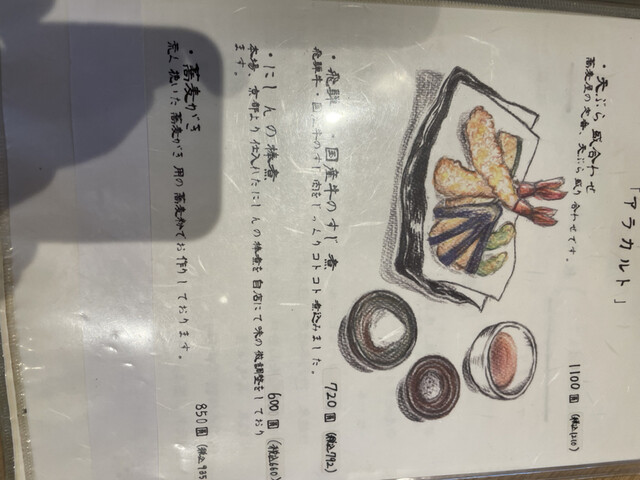 「アラカルト」
・天ぷら盛合わせ
蕎麦屋の定番、天ぷら盛り合わせです。
1100円(税込1210)
・飛騨・国産牛のすじ煮
飛騨牛・国産牛のすじ肉をじっくりコトコト煮込みました。
720円(税込792)
・にしんの棒煮
本場、京都より仕入れたにしんの棒煮を自店にて味の微調整をしており
ます。
600円(税込660)
・蕎麦がき
荒く挽いた蕎麦がき用の蕎麦粉でお作りしております。
850円(税込935